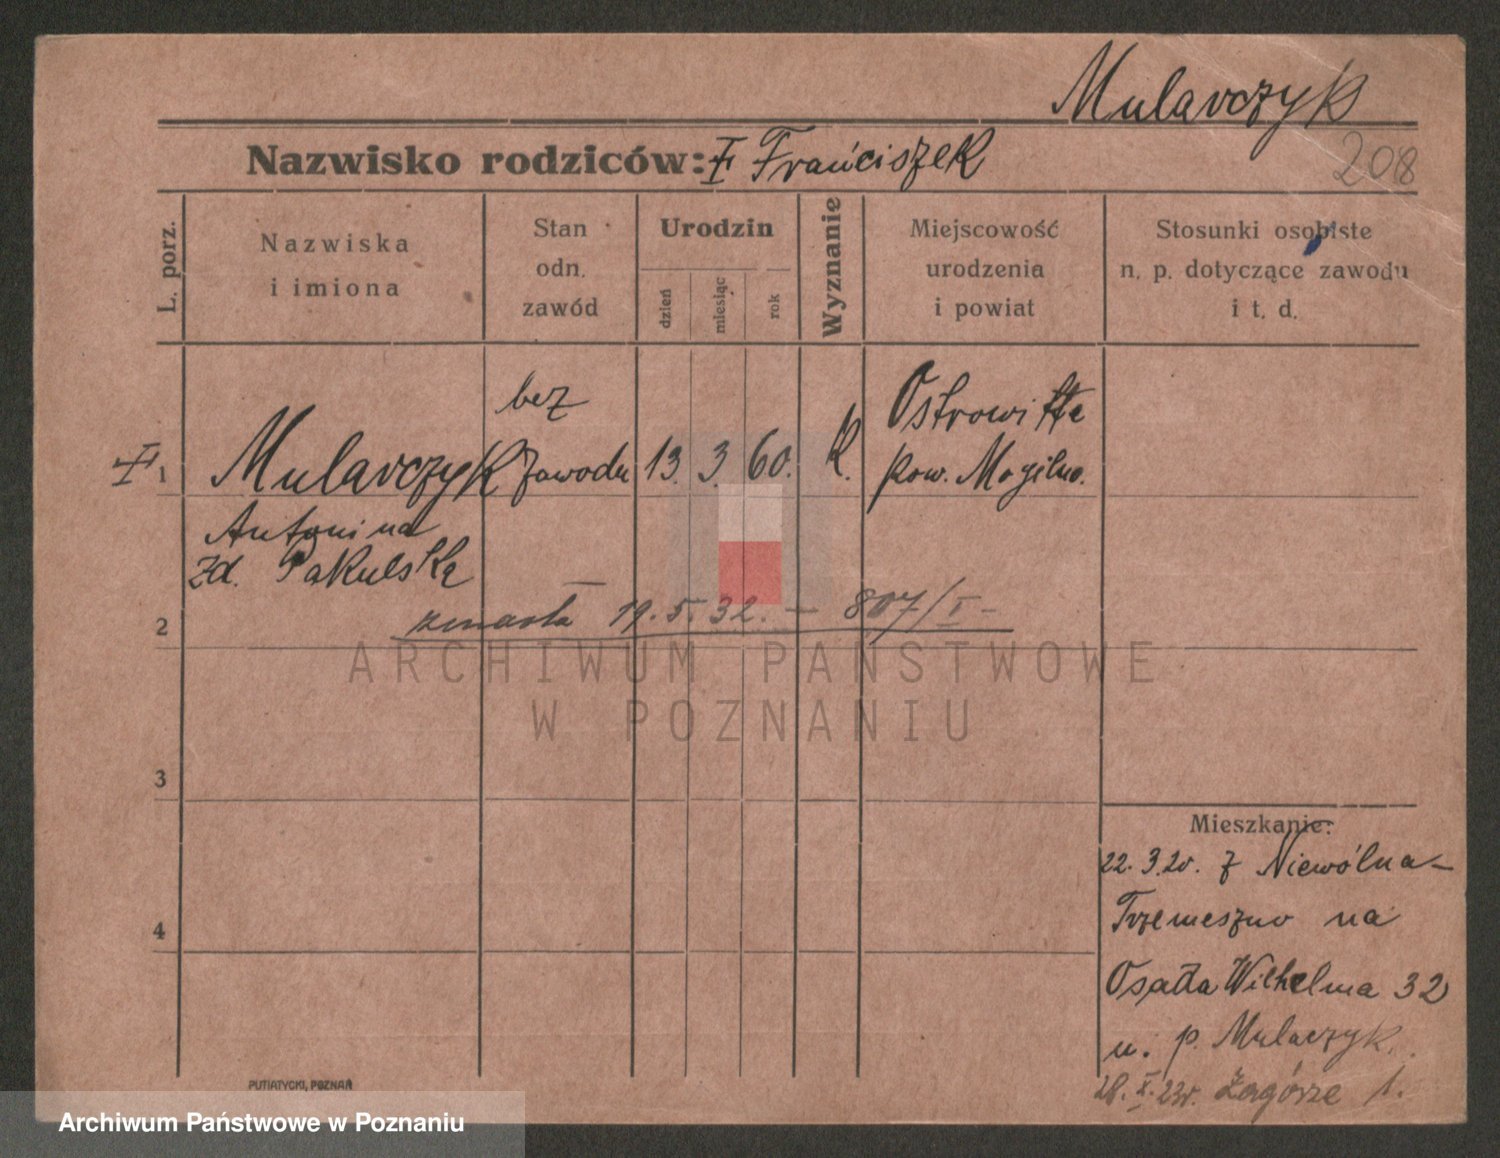 Mularczyk
208
Nazwisko rodziców: Franciszek
L. porz.
Nazwiska
i imiona
Stan
odn.
zawód
Urodzin
dzień
miesiąc
rok
Wyznanie
Miejscowość
urodzenia
i powiat
Stosunki osobiste
n. p. dotyczące zawodu
i t. d.
1
Mularczyk
Antonina
zd. Pakulska
bez
zawodu
13. 3. 60.
K.
Ostrowitte
pow. Mogilno.
2
zmarła 19.5.32. — 807/I -
3
4
Mieszkanie:
22.3.20. z Niewolna-
Trzemeszno na
Osada Wilhelma 32
u. p. Mularczyk.
28.X.23r. Zagórze 1.
PUTIATYCKI, POZNAŃ
ARCHIWUM PAŃSTWOWE
W POZNANIU
Archiwum Państwowe w Poznaniu